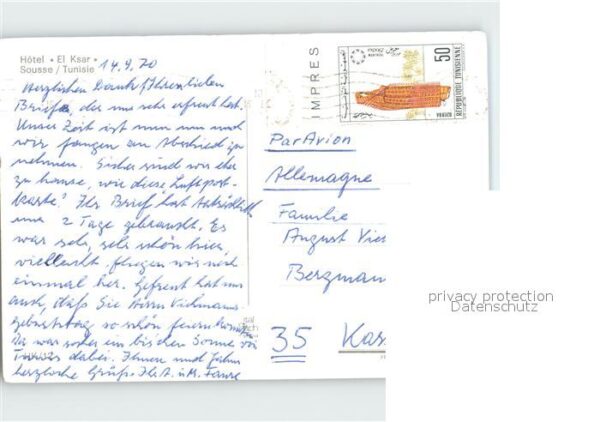 Hôtel • El Ksar •
Sousse / Tunisie
14.9.70
Herzlichen Dank f. Ihren lieben
Brief, der uns sehr erfreut hat.
Unsere Zeit ist nun um und
wir fangen an Abschied zu
nehmen. Sicher sind wir eher
zu hause, wie diese Luftpost-
karte! Ihr Brief hat
nur 2 Tage gebraucht. Es
war sehr, sehr schön hier
vielleicht fliegen wir noch
einmal her. Gefreut hat uns
auch, daß Sie Herrn
geburtstag so schön feiern konnten
Da war sicher ein bischen Sonne von
Tunis dabei. Ihnen und
herzliche Grüße Ihr A. u. M.
IMPRES
50
REPUBLIQUE TUNISIENNE
Par Avion
Allemagne
Familie
August Vie
Bergman
35 Kas
privacy protection
Datenschutz